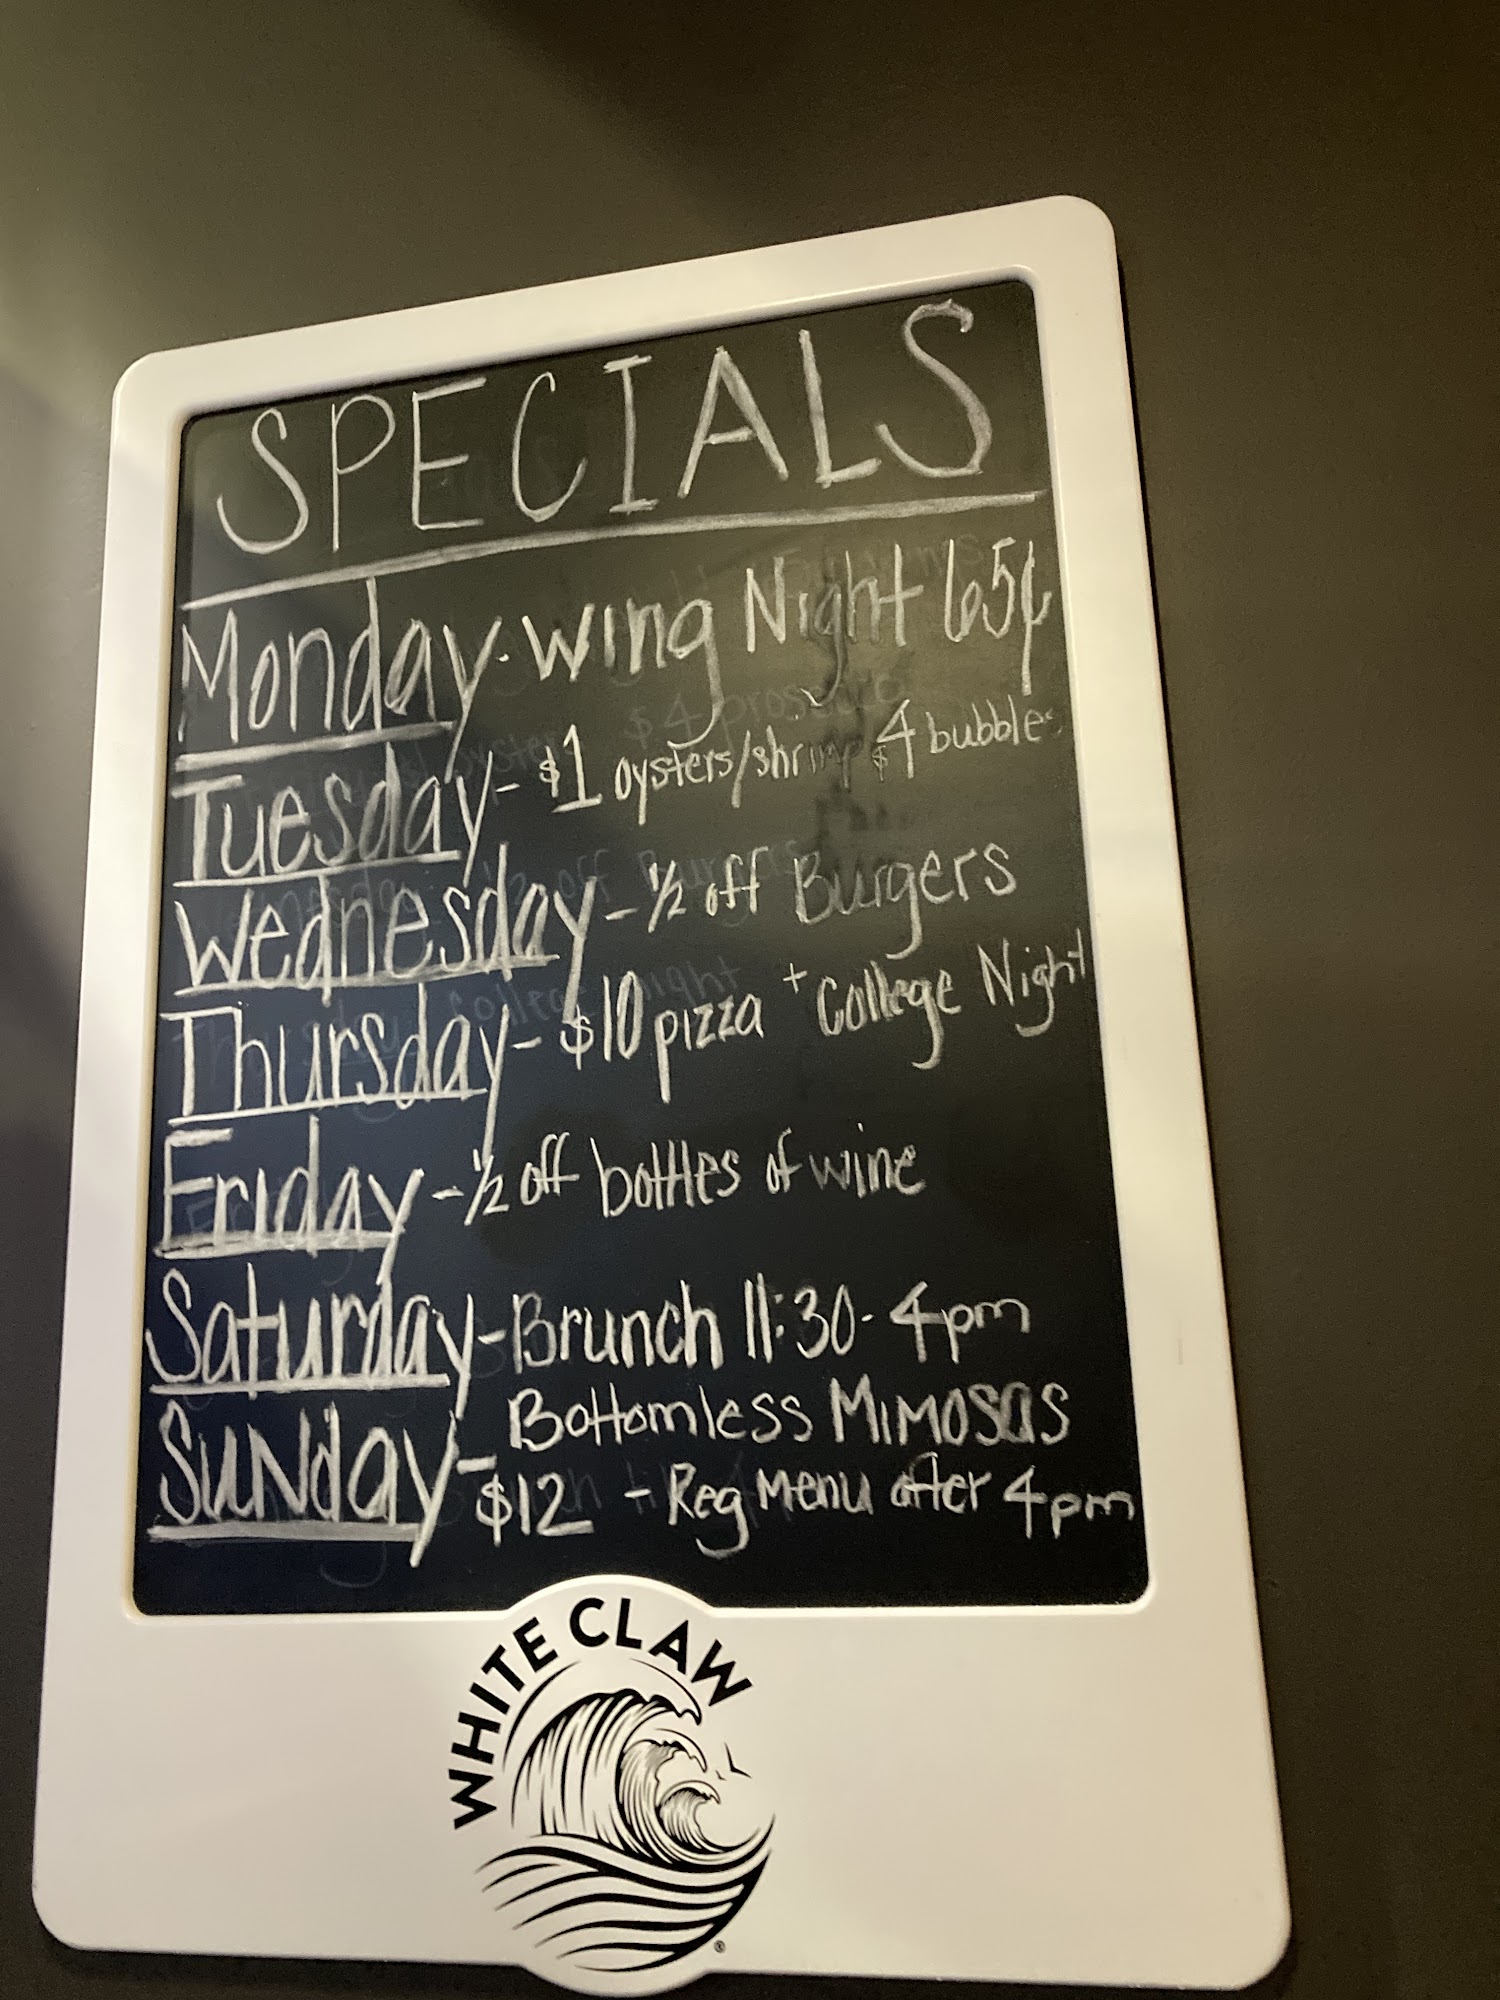 SPECIALS
Monday - Wing Night 65¢
Tuesday - $1 oysters/shrimp $4 bubbles
Wednesday - 1/2 off Burgers
Thursday - $10 pizza + College Night
Friday - 1/2 off bottles of wine
Saturday - Brunch 11:30 - 4pm
Bottomless Mimosas
Sunday - $12 - Reg Menu after 4pm
WHITE CLAW
®